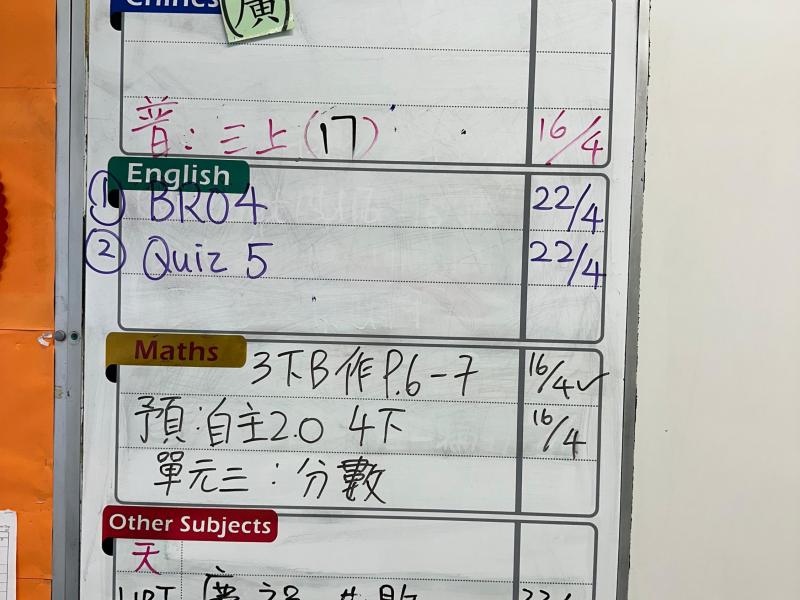 Chines
廣
普：三上(17) 16/4
English
① BR04 22/4
② Quiz 5 22/4
Maths
3下B作P.6-7 16/4✓
預：自主2.0 4下 16/4
單元三：分數
Other Subjects
天